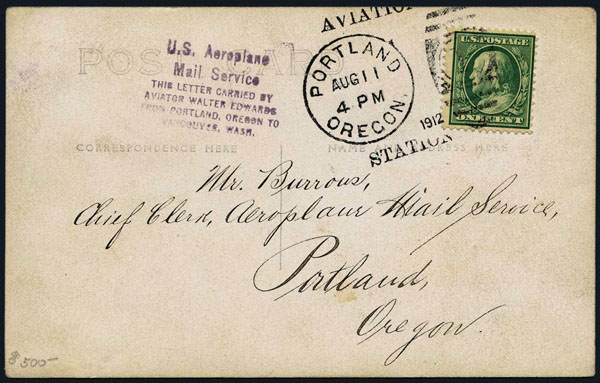 AVIATION
U.S. POSTAGE
POST CARD
U.S. Aeroplane
Mail Service
THIS LETTER CARRIED BY
AVIATOR WALTER EDWARDS
FROM PORTLAND, OREGON TO
VANCOUVER, WASH.
PORTLAND
AUG 11
4 PM
OREGON.
1912
ONE CENT
STATION
CORRESPONDENCE HERE
NAME AND ADDRESS HERE
Mr. Burrows,
Chief Clerk, Aeroplane Mail Service,
Portland,
Oregon.
$500-